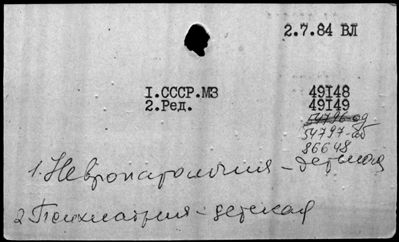 2.7.84 ВЛ
I.СССР.МЗ 49I48
2.Ред. 49I49
54796-од
54797-об
86648
1. Невропатология - детская
2 Психиатрия - детская